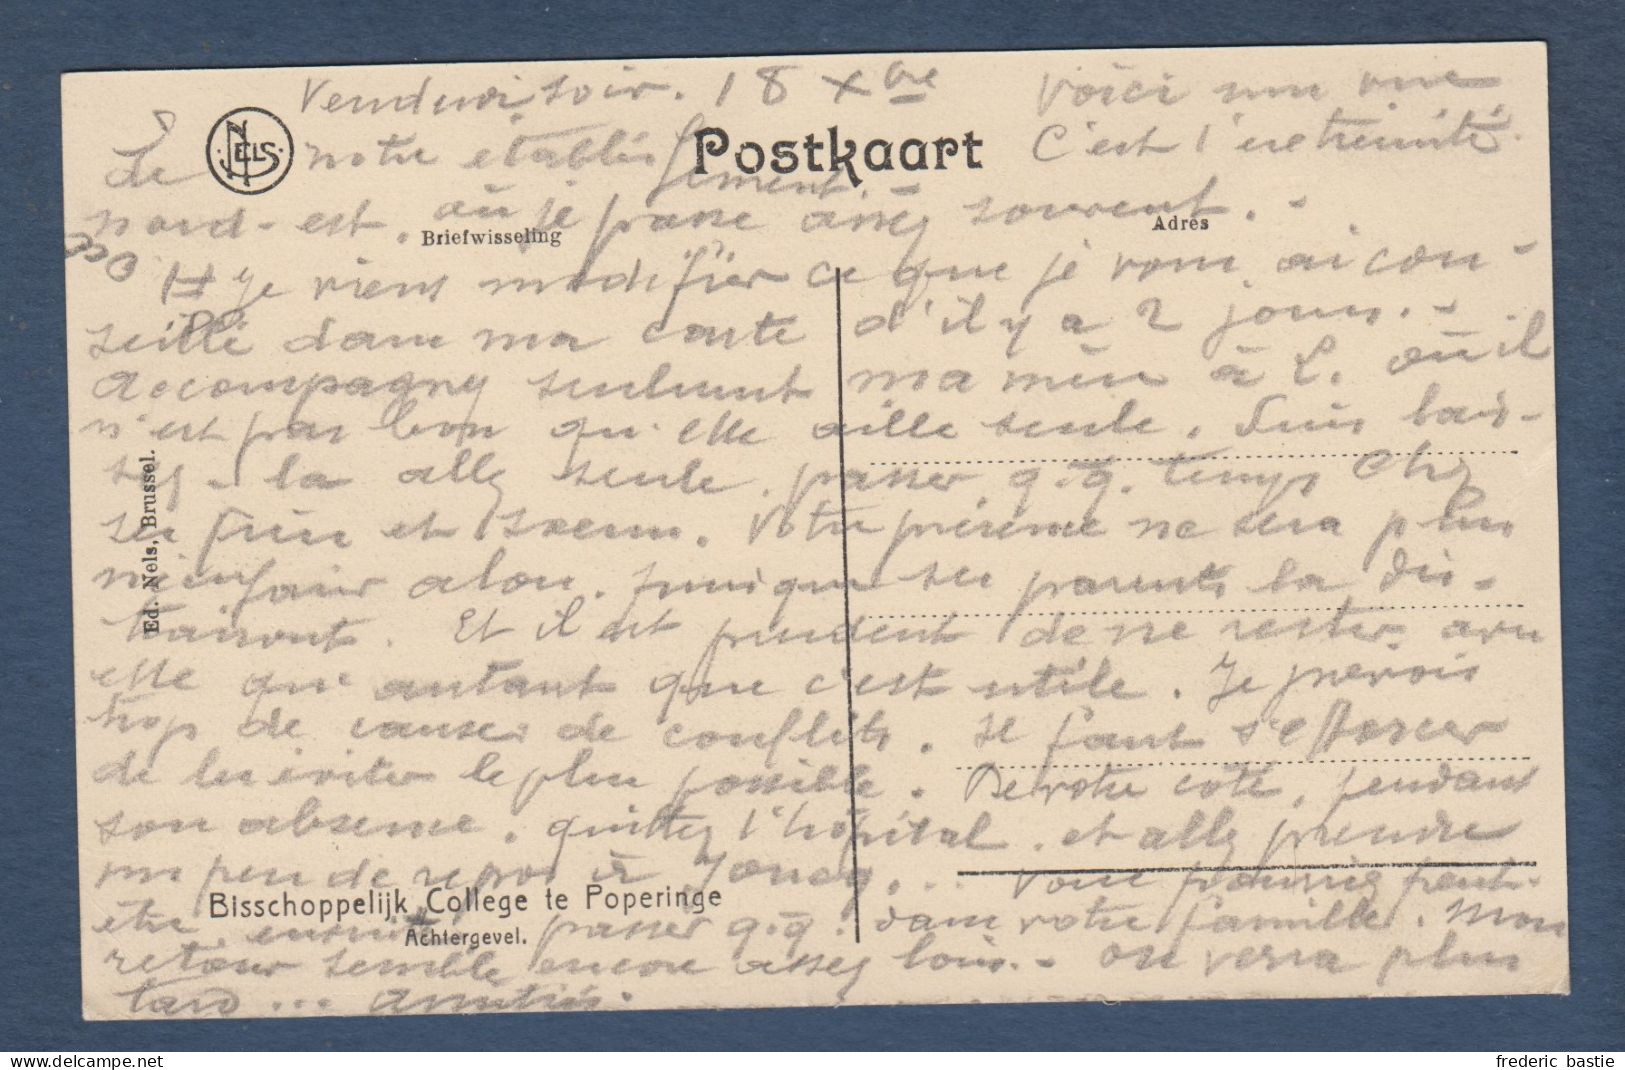 Vendredi soir. 18 Xbre Voici une vue
de notre établissement. C'est l'extrémité
NELS
Postkaart
nord-est, où je passe assez souvent. -
Briefwisseling
Adres
Je viens modifier ce que je vous ai con-
seillé dans ma carte d'il y a 2 jours. -
Accompagnez seulement ma mère à L. où il
n'est pas bon qu'elle aille seule. Puis lais-
sez-la aller seule passer q.q. temps chez
ses frère et soeur. Votre présence ne sera plus
nécessaire alors, puisque ses parents la dis-
trairont. Et il est prudent de ne rester avec
elle qu'autant que c'est utile. Je prévois
trop de causes de conflits. Il faut s'efforcer
de les éviter le plus possible. De votre côté, pendant
son absence, quittez l'hôpital et allez prendre
un peu de repos à ... Vous pourriez peut-
être ensuite passer q.q. dans votre famille. Mon
retour semble encore assez loin. - On verra plus
tard ... Amitiés.
Bisschoppelijk College te Poperinge
Achtergevel.
Ed. Nels, Brussel.
frederic bastie